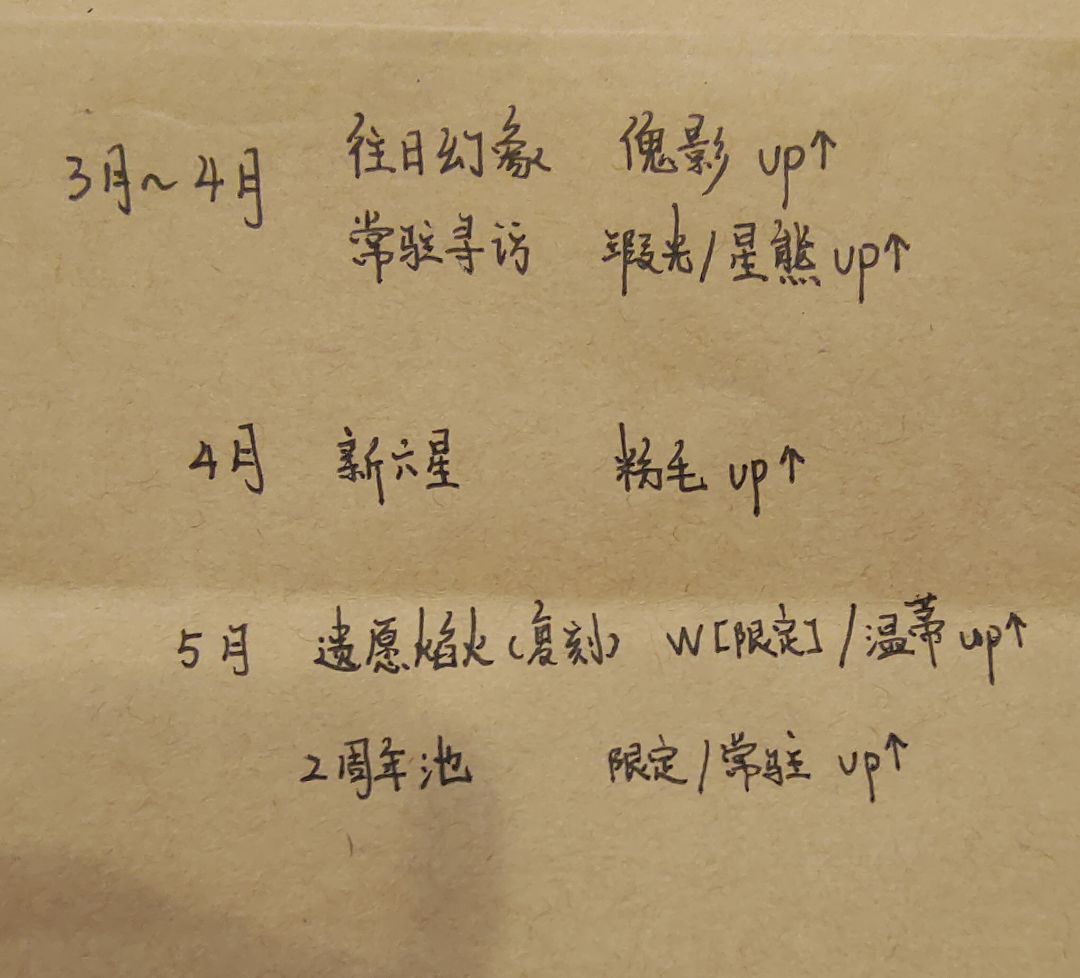 3月~4月 往日幻象 傀影 up↑
常驻寻访 瑕光/星熊 up↑
4月 新六星 粉毛 up↑
5月 遗愿焰火(复刻) W[限定]/温蒂 up↑
2周年池 限定/常驻 up↑